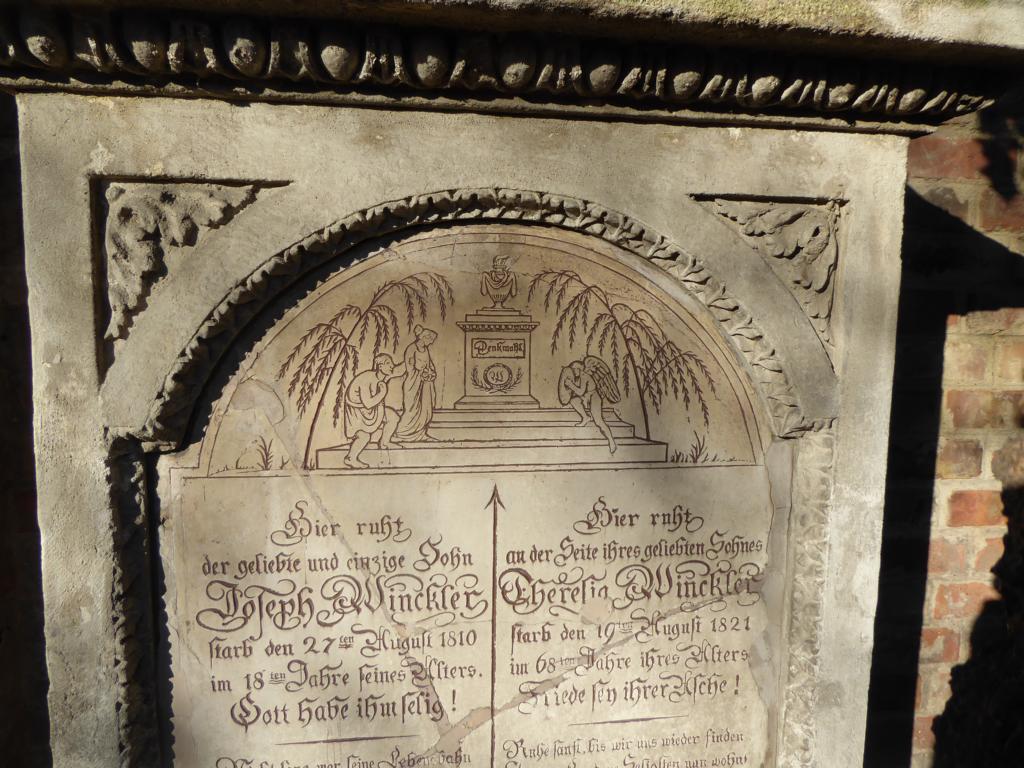 Denkmahl
Hier ruht
der geliebte und einzige Sohn
Joseph Winckler
starb den 27ten August 1810
im 18ten Jahre seines Alters.
Gott habe ihm selig!
war seine Lebensbahn
Hier ruht
an der Seite ihres geliebten Sohnes
Theresia Winckler
starb den 19ten August 1821
im 68ten Jahre ihres Alters
Friede sey ihrer Asche!
Ruhe sanft, bis wir uns wieder finden